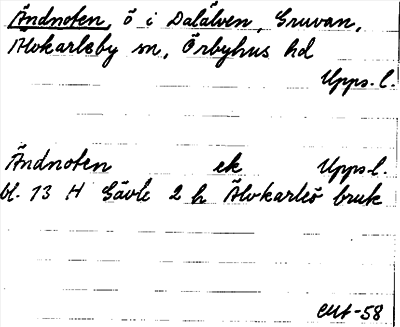 Ändnoten, ö i Dalälven, Gruvan,
Älvkarleby sn, Örbyhus hd
Upps. l.
Ändnoten ek Upps. l.
bl. 13 H Gävle 2 h Älvkarleö bruk
-58